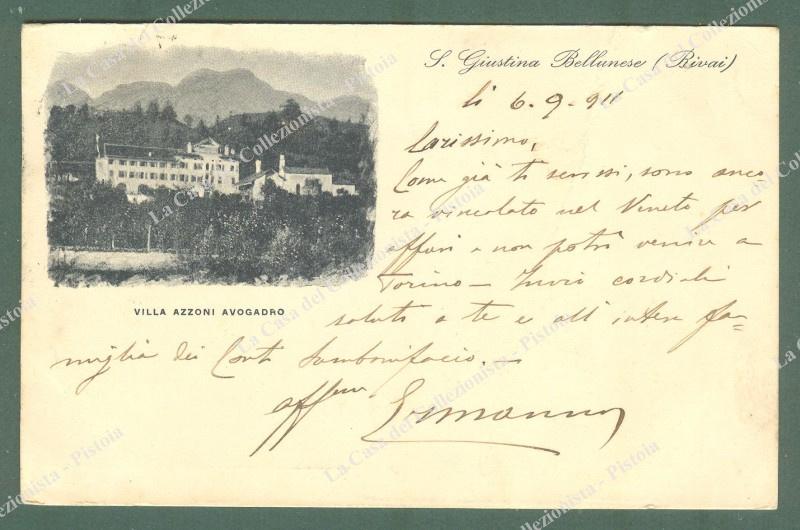 S. Giustina Bellunese (Bivai)
li 6.9.911
Carissimo,
Come già ti scrissi, sono anco-
ra vincolato nel Veneto per
affari e non potrò venire a
Torino - Invio cordiali
saluti a te e all'intera fa-
miglia dei Conti Sambonifacio. -
affmo Ermanno
VILLA AZZONI AVOGADRO
La Casa del Collezionista - Pistoia